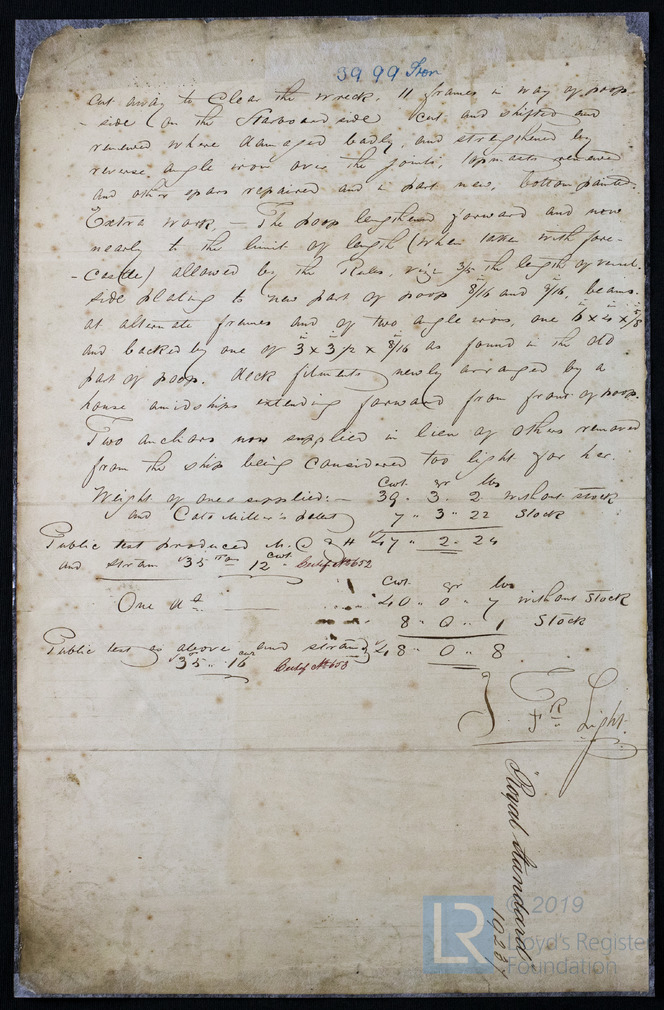 3999 Iron
cut away to clear the wreck. 11 frames in way of poop
-side (on the Starboard side) cut and shifted and
renewed where damaged badly, and strengthened by
reverse angle iron over the joints, topmasts renewed
and other spars repaired and in part new, bottom painted.
Extra work, — The poop lengthened forward and now
nearly to the limit of length (when taken with fore-
-castle) allowed by the Rules, viz 3/5 the length of vessel.
side plating to new part of poop 8/16 and 7/16, beams
at alternate frames and of two angle irons, one 6 x 4 x 5/8
and backed by one of 3 x 3 1/2 x 8/16 as found in the old
part of poop. deck fitments newly arranged by a
house amidships extending forward from front of poop.
Two anchors now supplied in lieu of others removed
from the ship being considered too light for her.
Cwt qr lbs
Weight of one supplied:— 39 . 3 . 2 without stock
and 7 " 3 " 22 Stock
Public test produced 47 " 2 " 24
and strain 35 tons 12 cwt Certif No 652
Cwt qr lbs
One do 40 " 0 " 7 without Stock
8 " 0 " 1 Stock
Public test as above and strain 48 " 0 " 8
35 " 16 cwt Certif No 653
Light.
"Royal Standard"
© 2019
LR
Lloyd's Register
Foundation